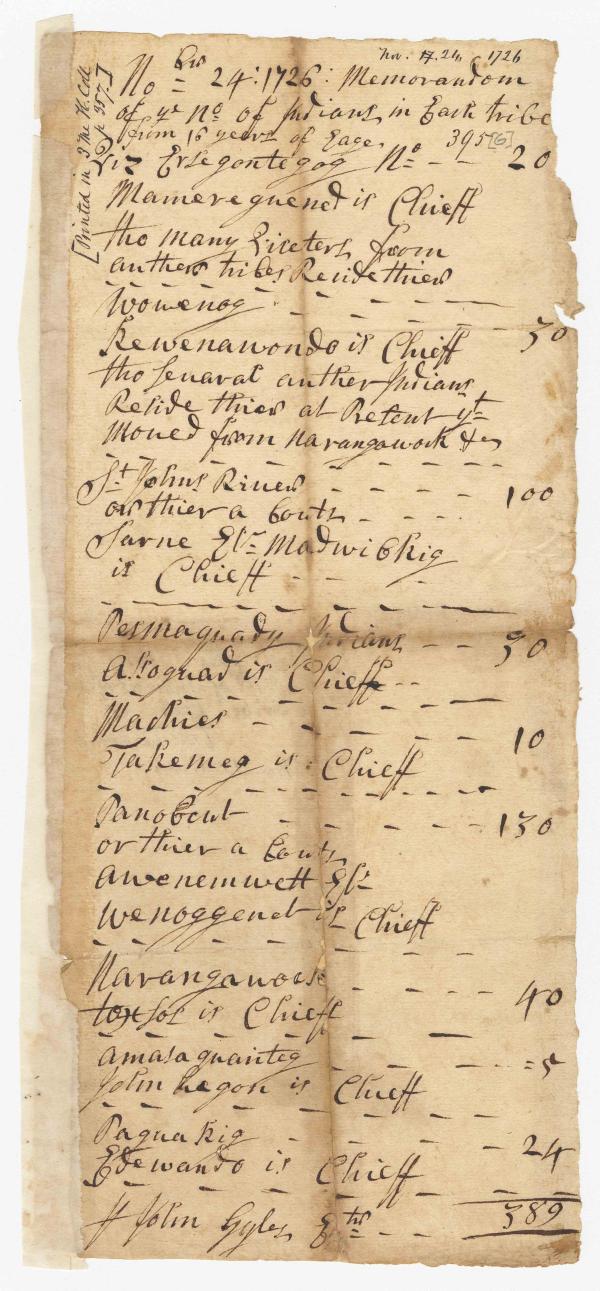 Nov. 24. 1726
[Printed in 3 Me H. Coll p. 357.]
No bw 24: 1726: Memorandom
of ye No of Indians in Each tribe
from 16 years of Eage. 395[6]
Viz Ersegontegog No - - 20
Mamereguened is Chieff
tho many Viseters from
anther tribes Reside thier
Wowenog - - - - - -
Kewenawondo is Chieff 30
tho senaral anther Indians
Reside thier at Resent yt
Moued from Narangawock &c
St Johns River - - - - 100
or thier a bouts - - - -
Sarne Est Madwibkig
is Chieff - - -
Pesmaquady Indians - - 30
Assoquad is Chieff - -
Machies - - - - - 10
Takemeg is Chieff
Panobcut - - - - - 130
or thier a bouts
Awenemwett Est
Wenoggenet is Chieff
Narangawock - - - - 40
Toxsos is Chieff
Amasaquanteg - - - - = 5
John hegon is Chieff
Paquakig - - - - 24
Edewando is Chieff
389
John Gyles